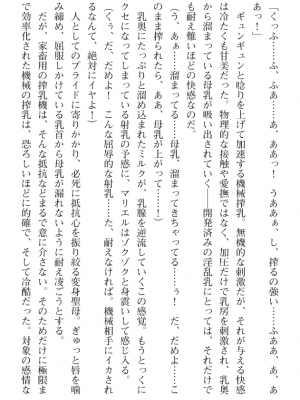 「くっふ……ふ、ふぁ……あ、あっ！ うああぁ、し、搾るの強い……ふああ、あ、
あっ！」
　ギュンギュンと唸りを上げて加速する機械搾乳。無機的な刺激だが、それが与える快感
は冷たくも甘美だった。物理的な接触や愛撫ではなく、加圧だけで乳房を刺激され、乳奥
から溜まっている母乳が吸い出されていく――開発済みの淫乱乳にとっては、それだけで
も耐え難いほどの快感なのだ。
（う、あぁ……溜まってる……母乳、溜まってきちゃってる……っ！　だ、だめよ……こ
のまま搾られたら、ああ、母乳が上がって……っ！）
　乳奥にたっぷりと溜め込まれたミルクが、乳腺を逆流していくこの感覚。もうとっくに
クセになってしまっている射乳の予感に、マリエルはゾクゾクと身震いして感じ入る。
（くぅっ、だ、だめよ！　こんな屈辱的な射乳……た、耐えなければ。機械相手にイカされ
るなんて、絶対にイヤよ！）
　人としてのプライドに寄りかかり、必死に抵抗心を振り絞る変身聖母。ぎゅっと唇を噛
み締め、屈服しかけている乳首から母乳が漏れないように耐え凌ごうとする。
　だが、家畜用の搾乳機は、そんな抵抗などまるで意に介さない。そのためだけに極限ま
で効率化された機械の搾乳は、恐ろしいほどに的確で、そして冷酷だった。対象の感情な